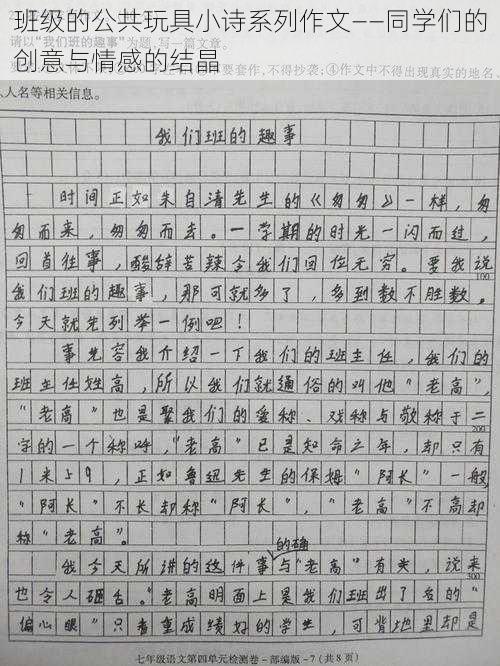 班级的公共玩具小诗系列作文——同学们的
创意与情感的结晶
请以“我们班的趣事”为题，写一篇文章。
要套作，不得抄袭；④作文中不得出现真实的地名、
人名等相关信息。
我们班的趣事
时间正如朱自清先生的《匆匆》一样，匆
匆而来，匆匆而去。一学期的时光一闪而过，
回首往事，酸辞苦辣令我们回位无穷。要我说
100
我们班的趣事，那可就多了，多到数不胜数。
今天就先列举一例吧！
事先容我介绍一下我们的班主任，我们的
班主任姓高，所以我们就通俗的叫他“老高”，
“老高”也是聚我们的爱称、戏称与敬称于二
200
字的一个称呼，“老高”已是知命之年，却只有
1米59，正如鲁迅先生的保姆“阿长”一般，
“阿长”不长却称“阿长”，“老高”不高却
称“老高”。
的确
我今天所讲的这件事与“老高”有关，说来
300
也令人砸舌。“老高明面上是我们班出了名的“
偏心眼”只看重成绩好的学生，可背地里却是
七年级语文第四单元检测卷－部编版－7（共8页）